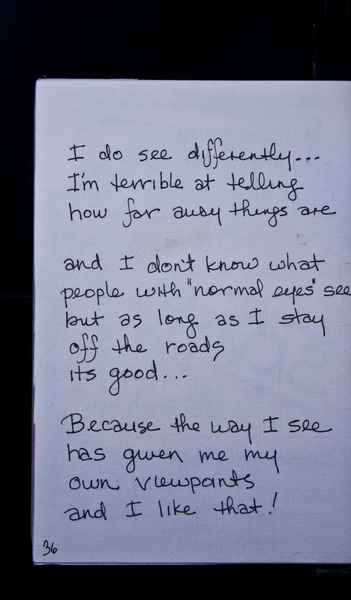 I do see differently...
I'm terrible at telling
how far away things are
and I don't know what
people with "normal eyes" see
but as long as I stay
off the roads
its good...
Because the way I see
has given me my
own viewpoints
and I like that!
36